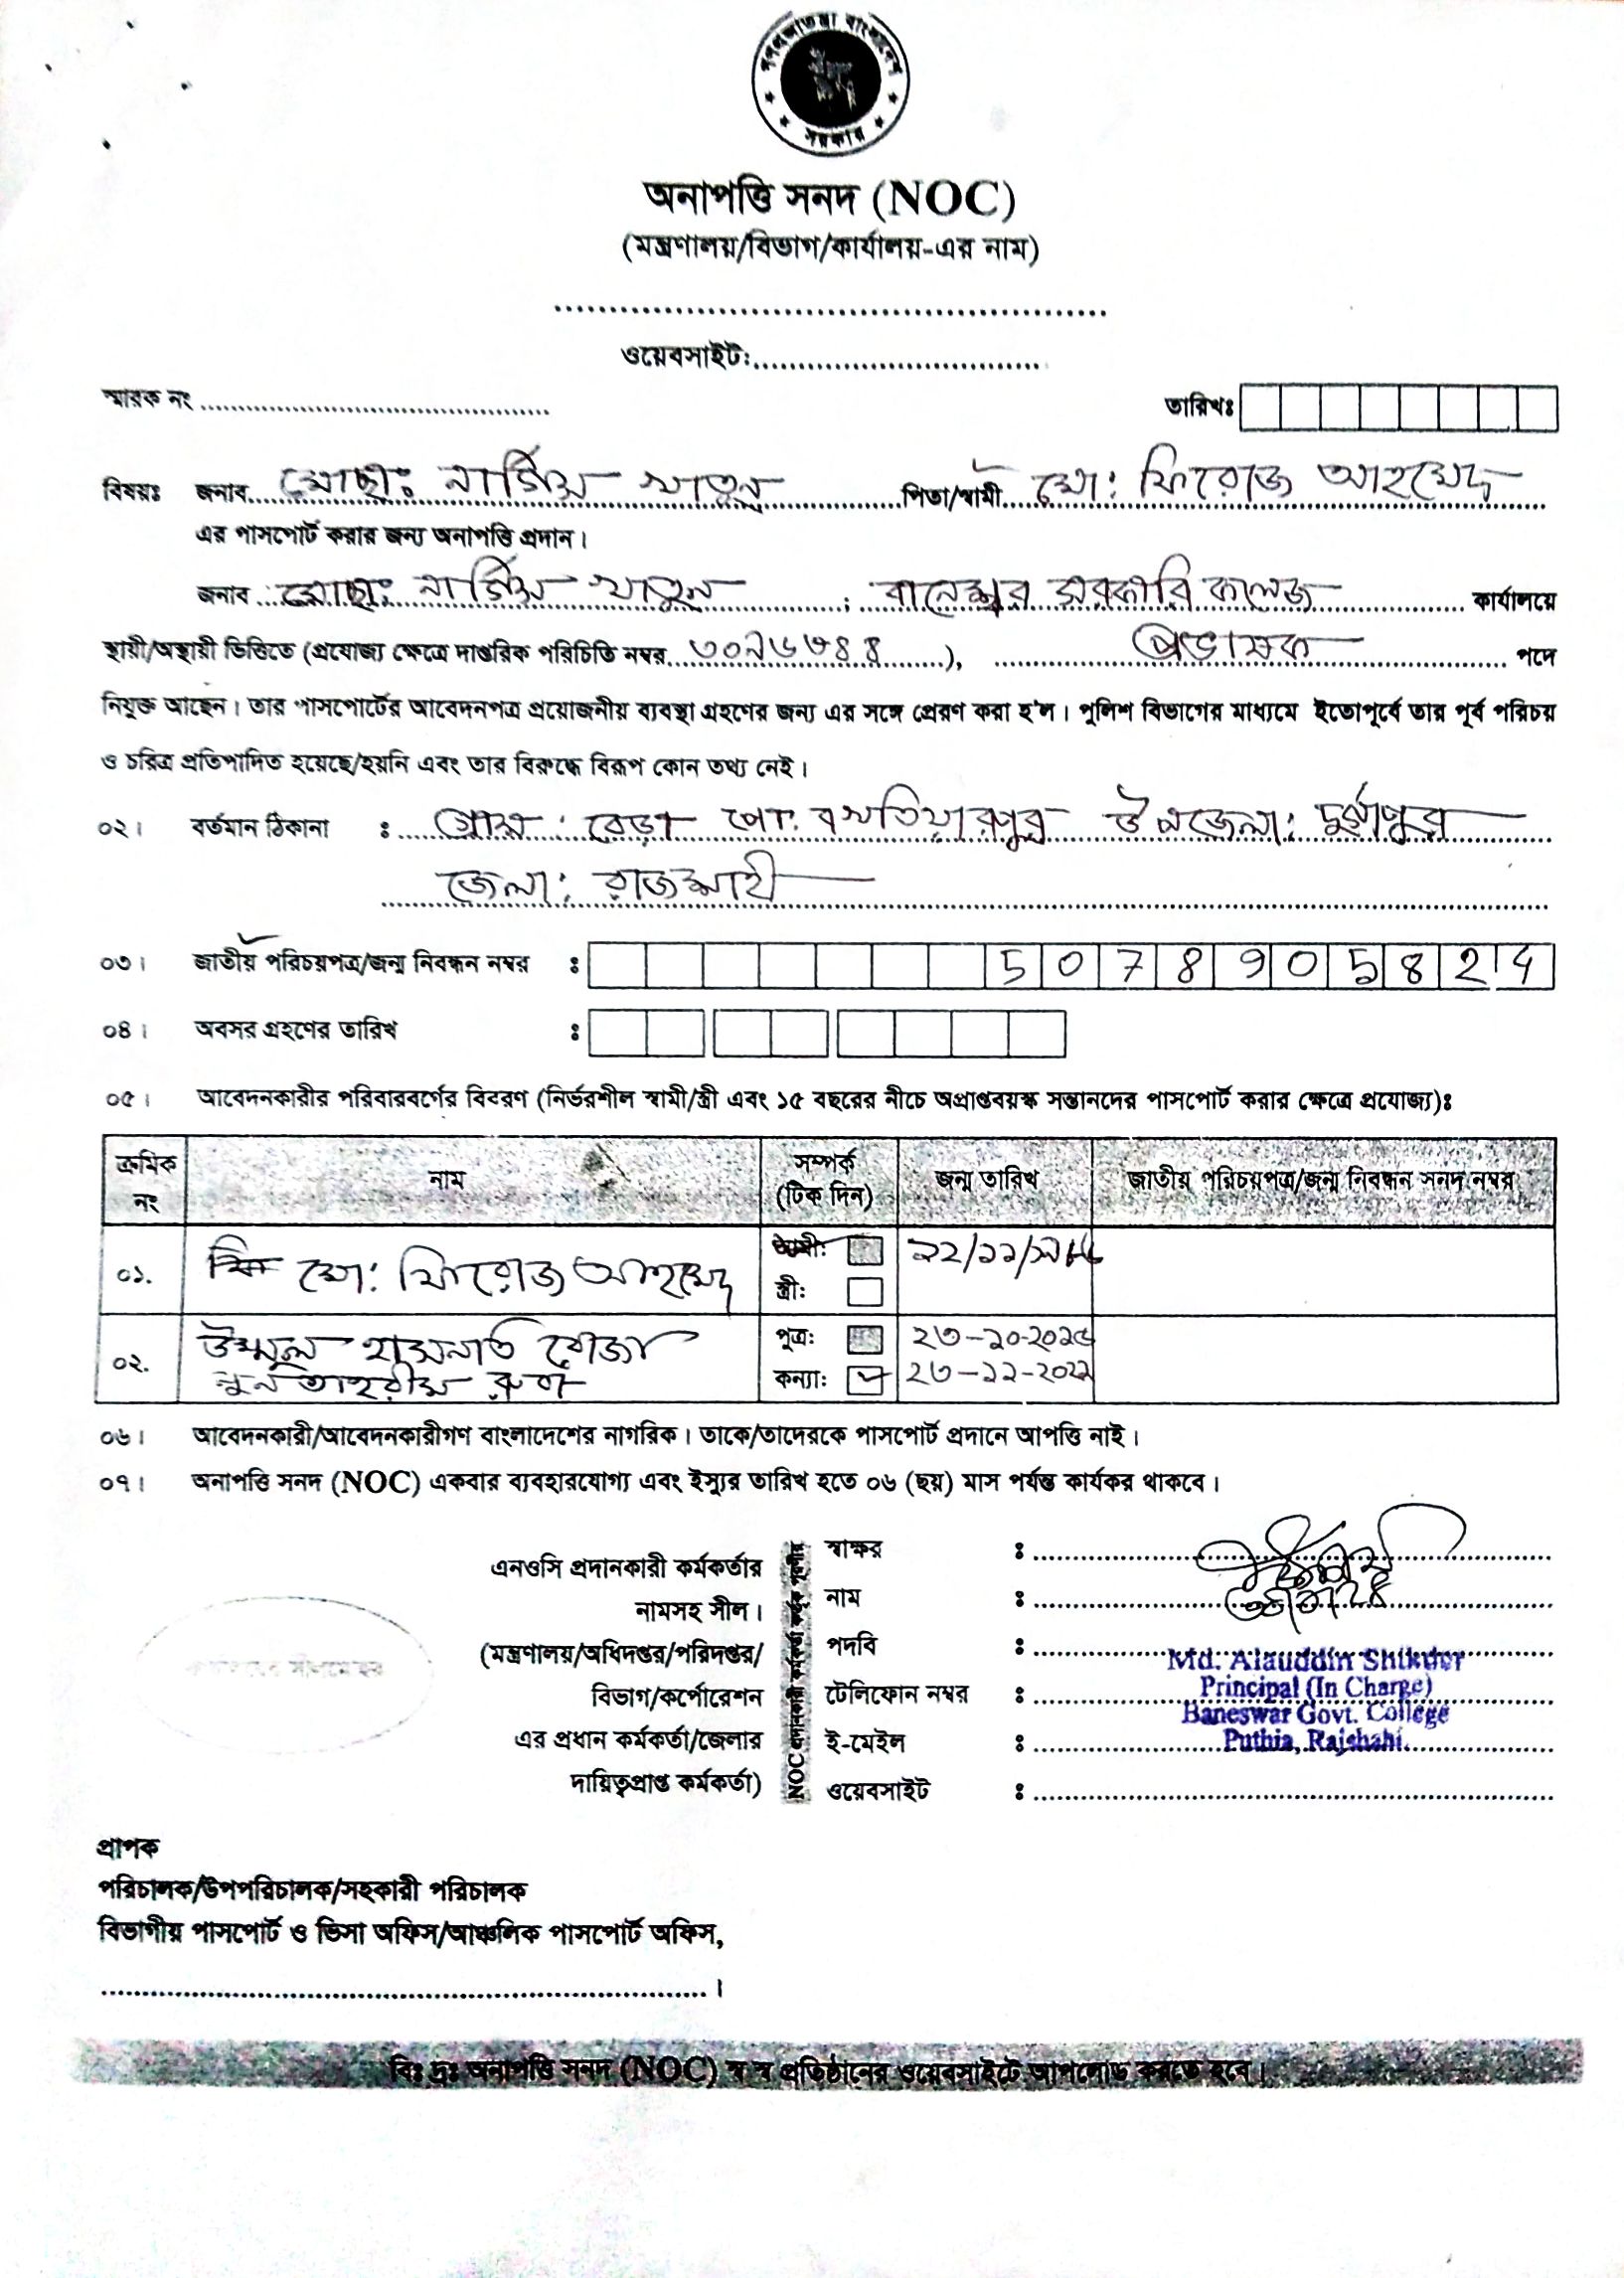 গণপ্রজাতন্ত্রী বাংলাদেশ
সরকার
অনাপত্তি সনদ (NOC)
(মন্ত্রণালয়/বিভাগ/কার্যালয়-এর নাম)
ওয়েবসাইটঃ
স্মারক নং
তারিখঃ
বিষয়ঃ জনাব মোছাঃ নার্গিস খাতুন পিতা/স্বামী মো: ফিরোজ আহমেদ
এর পাসপোর্ট করার জন্য অনাপত্তি প্রদান।
জনাব মোছাঃ নার্গিস খাতুন, বানেশ্বর সরকারি কলেজ কার্যালয়ে
স্থায়ী/অস্থায়ী ভিত্তিতে (প্রযোজ্য ক্ষেত্রে দাপ্তরিক পরিচিতি নম্বর), প্রভাষক পদে
নিযুক্ত আছেন। তার পাসপোর্টের আবেদনপত্র প্রয়োজনীয় ব্যবস্থা গ্রহণের জন্য এর সঙ্গে প্রেরণ করা হ'ল। পুলিশ বিভাগের মাধ্যমে ইতোপূর্বে তার পূর্ব পরিচয়
ও চরিত্র প্রতিপাদিত হয়েছে/হয়নি এবং তার বিরুদ্ধে বিরূপ কোন তথ্য নেই।
০২। বর্তমান ঠিকানা : গ্রাম: বেড়া পো: বখতিয়ারপুর উপজেলা: দুর্গাপুর
জেলা: রাজশাহী
০৩। জাতীয় পরিচয়পত্র/জন্ম নিবন্ধন নম্বর : 5078905824
০৪। অবসর গ্রহণের তারিখ :
০৫। আবেদনকারীর পরিবারবর্গের বিবরণ (নির্ভরশীল স্বামী/স্ত্রী এবং ১৫ বছরের নীচে অপ্রাপ্তবয়স্ক সন্তানদের পাসপোর্ট করার ক্ষেত্রে প্রযোজ্য)ঃ
ক্রমিক নং নাম সম্পর্ক (টিক দিন) জন্ম তারিখ জাতীয় পরিচয়পত্র/জন্ম নিবন্ধন সনদ নম্বর
০১. মো: ফিরোজ আহমেদ স্বামী:
স্ত্রী:
০২. হাসনাত রেজা পুত্র:
কন্যা: ২৩-১১-২০২২
০৬। আবেদনকারী/আবেদনকারীগণ বাংলাদেশের নাগরিক। তাকে/তাদেরকে পাসপোর্ট প্রদানে আপত্তি নাই।
০৭। অনাপত্তি সনদ (NOC) একবার ব্যবহারযোগ্য এবং ইস্যুর তারিখ হতে ০৬ (ছয়) মাস পর্যন্ত কার্যকর থাকবে।
এনওসি প্রদানকারী কর্মকর্তার
নামসহ সীল।
(মন্ত্রণালয়/অধিদপ্তর/পরিদপ্তর/
বিভাগ/কর্পোরেশন
এর প্রধান কর্মকর্তা/জেলার
দায়িত্বপ্রাপ্ত কর্মকর্তা)
NOC প্রদানকারী কর্মকর্তা কর্তৃক পূরণীয়
স্বাক্ষর :
নাম :
পদবি :
টেলিফোন নম্বর :
ই-মেইল :
ওয়েবসাইট :
Md. Alauddin Shikder
Principal (In Charge)
Baneswar Govt. College
Puthia, Rajshahi.
প্রাপক
পরিচালক/উপপরিচালক/সহকারী পরিচালক
বিভাগীয় পাসপোর্ট ও ভিসা অফিস/আঞ্চলিক পাসপোর্ট অফিস,
বিঃ দ্রঃ অনাপত্তি সনদ (NOC) স্ব স্ব প্রতিষ্ঠানের ওয়েবসাইটে আপলোড করতে হবে।